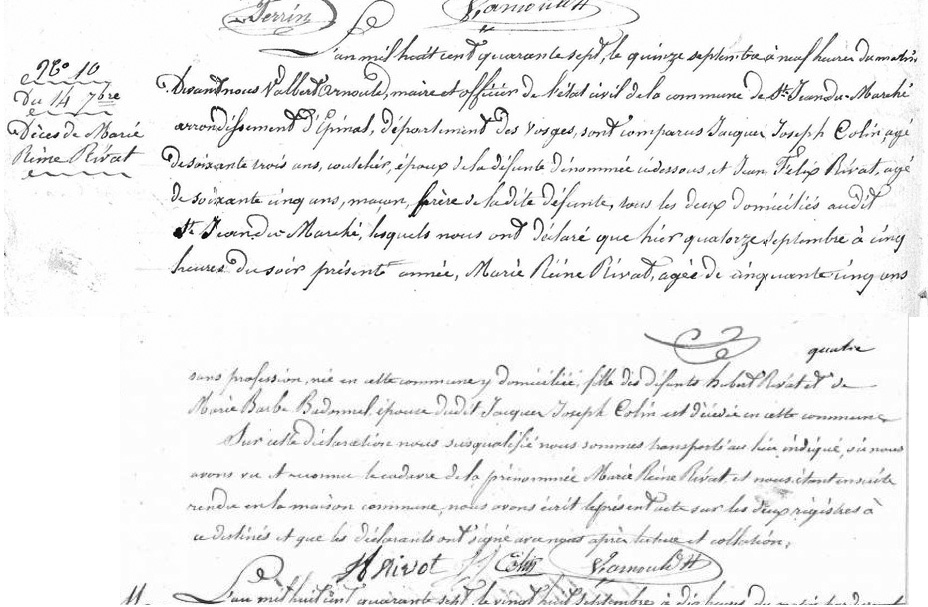 Perrin Varnould
N° 10
Du 14 7bre
Décès de Marie
Reine Rivat
L'an mil huit cent quarante sept, le quinze septembre à neuf heures du matin,
Devant nous Valbert Arnould, maire et officier de l'état civil de la commune de St Jean du Marché
arrondissement d'Epinal, département des Vosges, sont comparus Jacques Joseph Colin, agé
de soixante trois ans, coutelier, époux de la défunte dénommée cidessous, et Jean Felix Rivat, agé
de soixante cinq ans, maçon, frère de la dite défunte, tous les deux domiciliés audit
St Jean du Marché, lesquels nous ont déclaré que hier quatorze septembre à cinq
heures du soir présente année, Marie Reine Rivat, agée de cinquante cinq ans
quatre
sans profession, née en cette commune y domiciliée, fille des défunts hubert Rivat et de
Marie Barbe Badonnel, épouse dudit Jacques Joseph Colin est décédée en cette commune
Sur cette déclaration nous susqualifié nous sommes transporté au lieu indiqué, où nous
avons vu et reconnu le cadavre de la prénommée Marie Reine Rivat et nous étant ensuite
rendu en la maison commune, nous avons écrit le présent acte sur les deux régistres à
ce destinés et que les déclarants ont signé avec nous après lecture et collation.
Rivat Colin Varnould
L'an mil huit cent quarante sept, le vingt huit septembre à dix heures du matin par devant